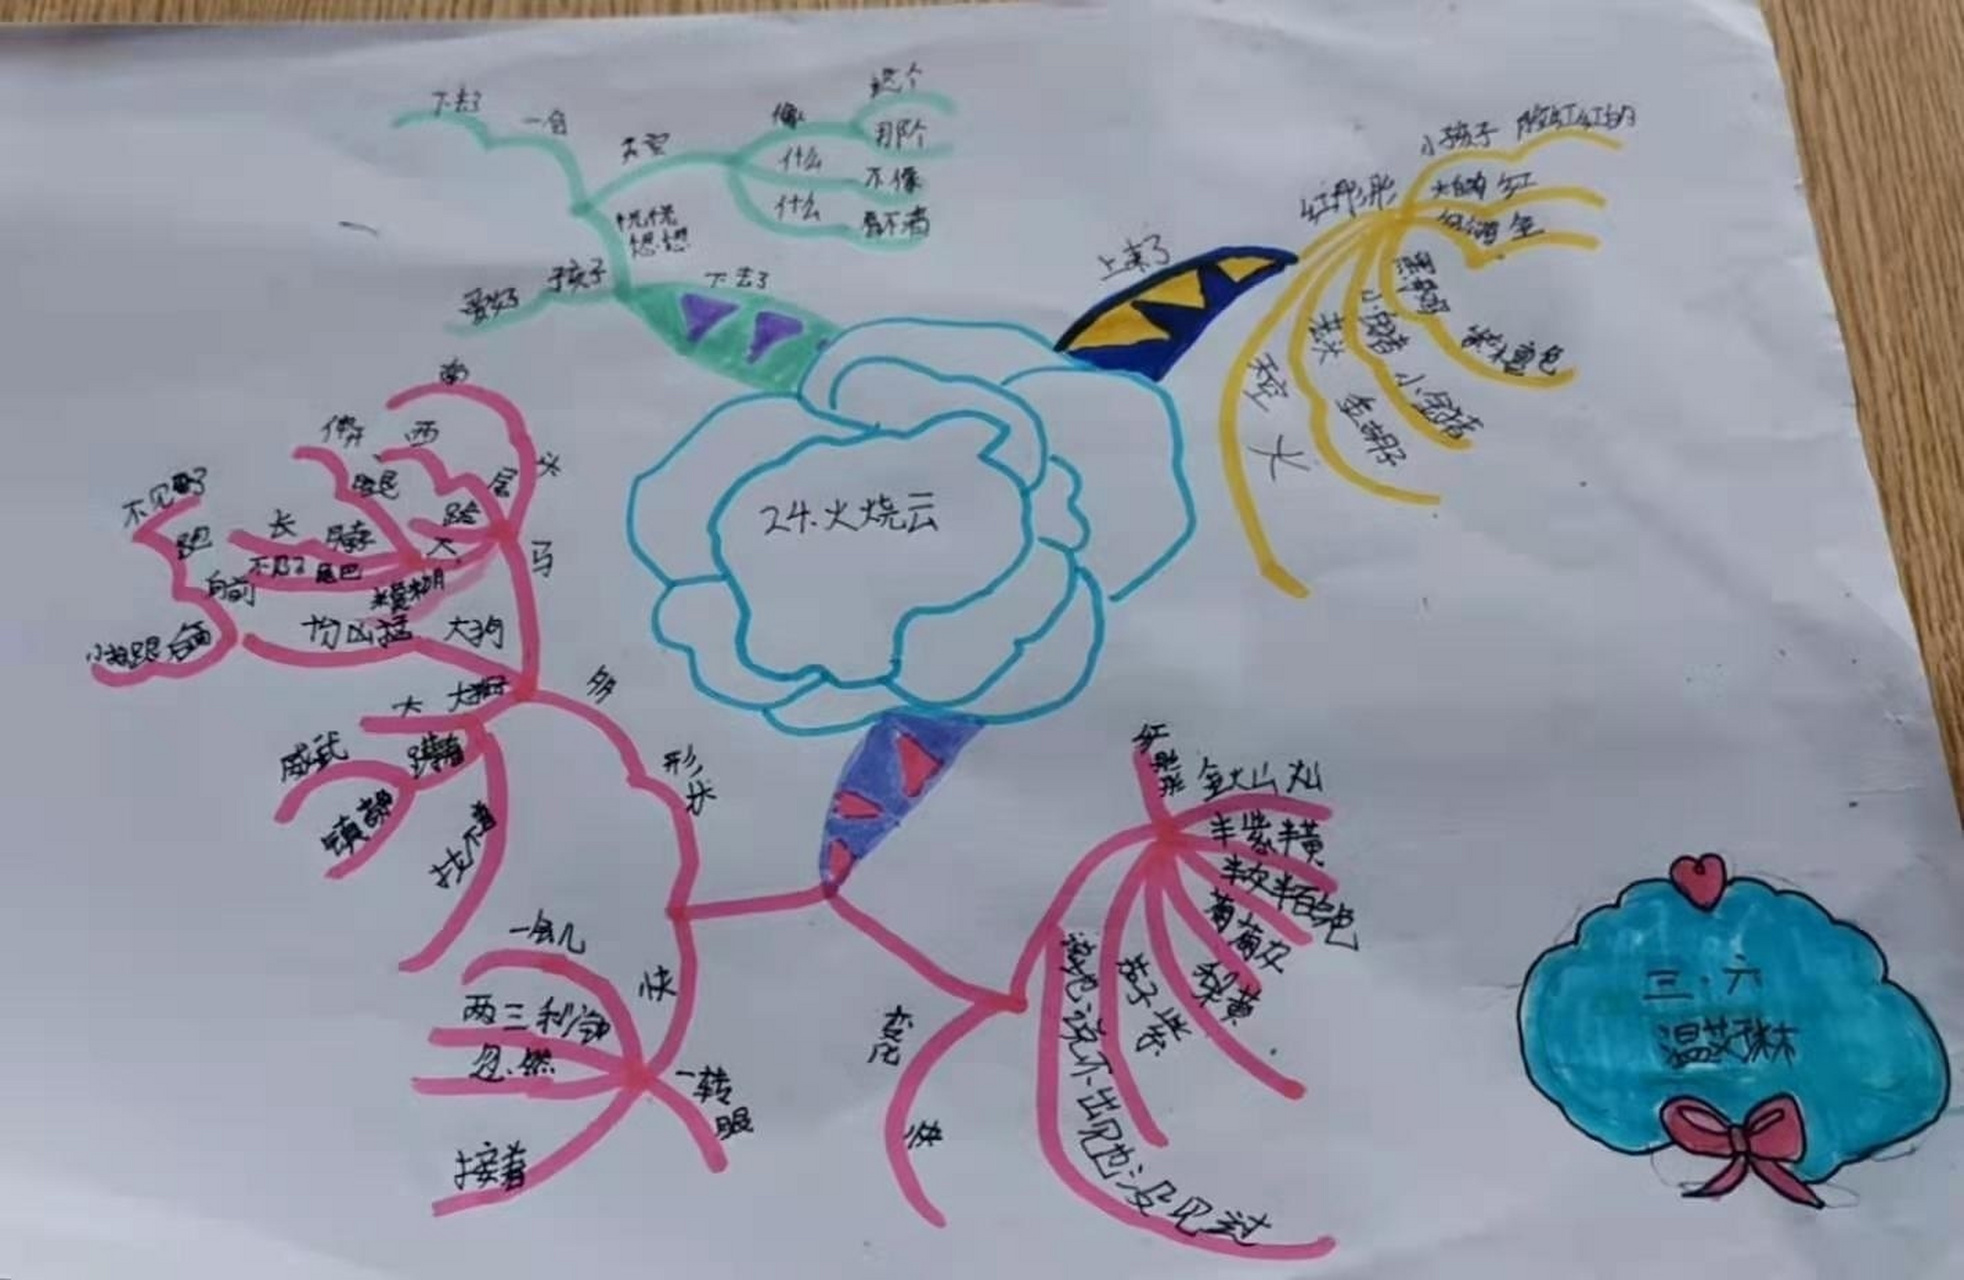 24.火烧云
上来了
红彤彤
小孩子 脸红红的
大白狗 红
红公鸡 金
黑母鸡
紫檀色
小白猪
小金猪
金胡子
天空
火
下去了
恍恍
惚惚
天空
像
这个
那个
什么
不像
什么
看不清
一会
下去了
孩子
爱好
形状
多
马
头
南
尾
西
跪
大
站起
腿
长
尾巴
不见了
模糊
大狗
凶猛
向前
跑
小狗跟后面
大狮子
大
蹲着
威武
镇静
找不着
快
一会儿
两三秒
忽然
接着
一转
眼
变化
快
红
彤彤
金灿灿
半紫半黄
半灰半百合色
葡萄灰
梨黄
茄子紫
说也说不出见也没见过
三.六
温